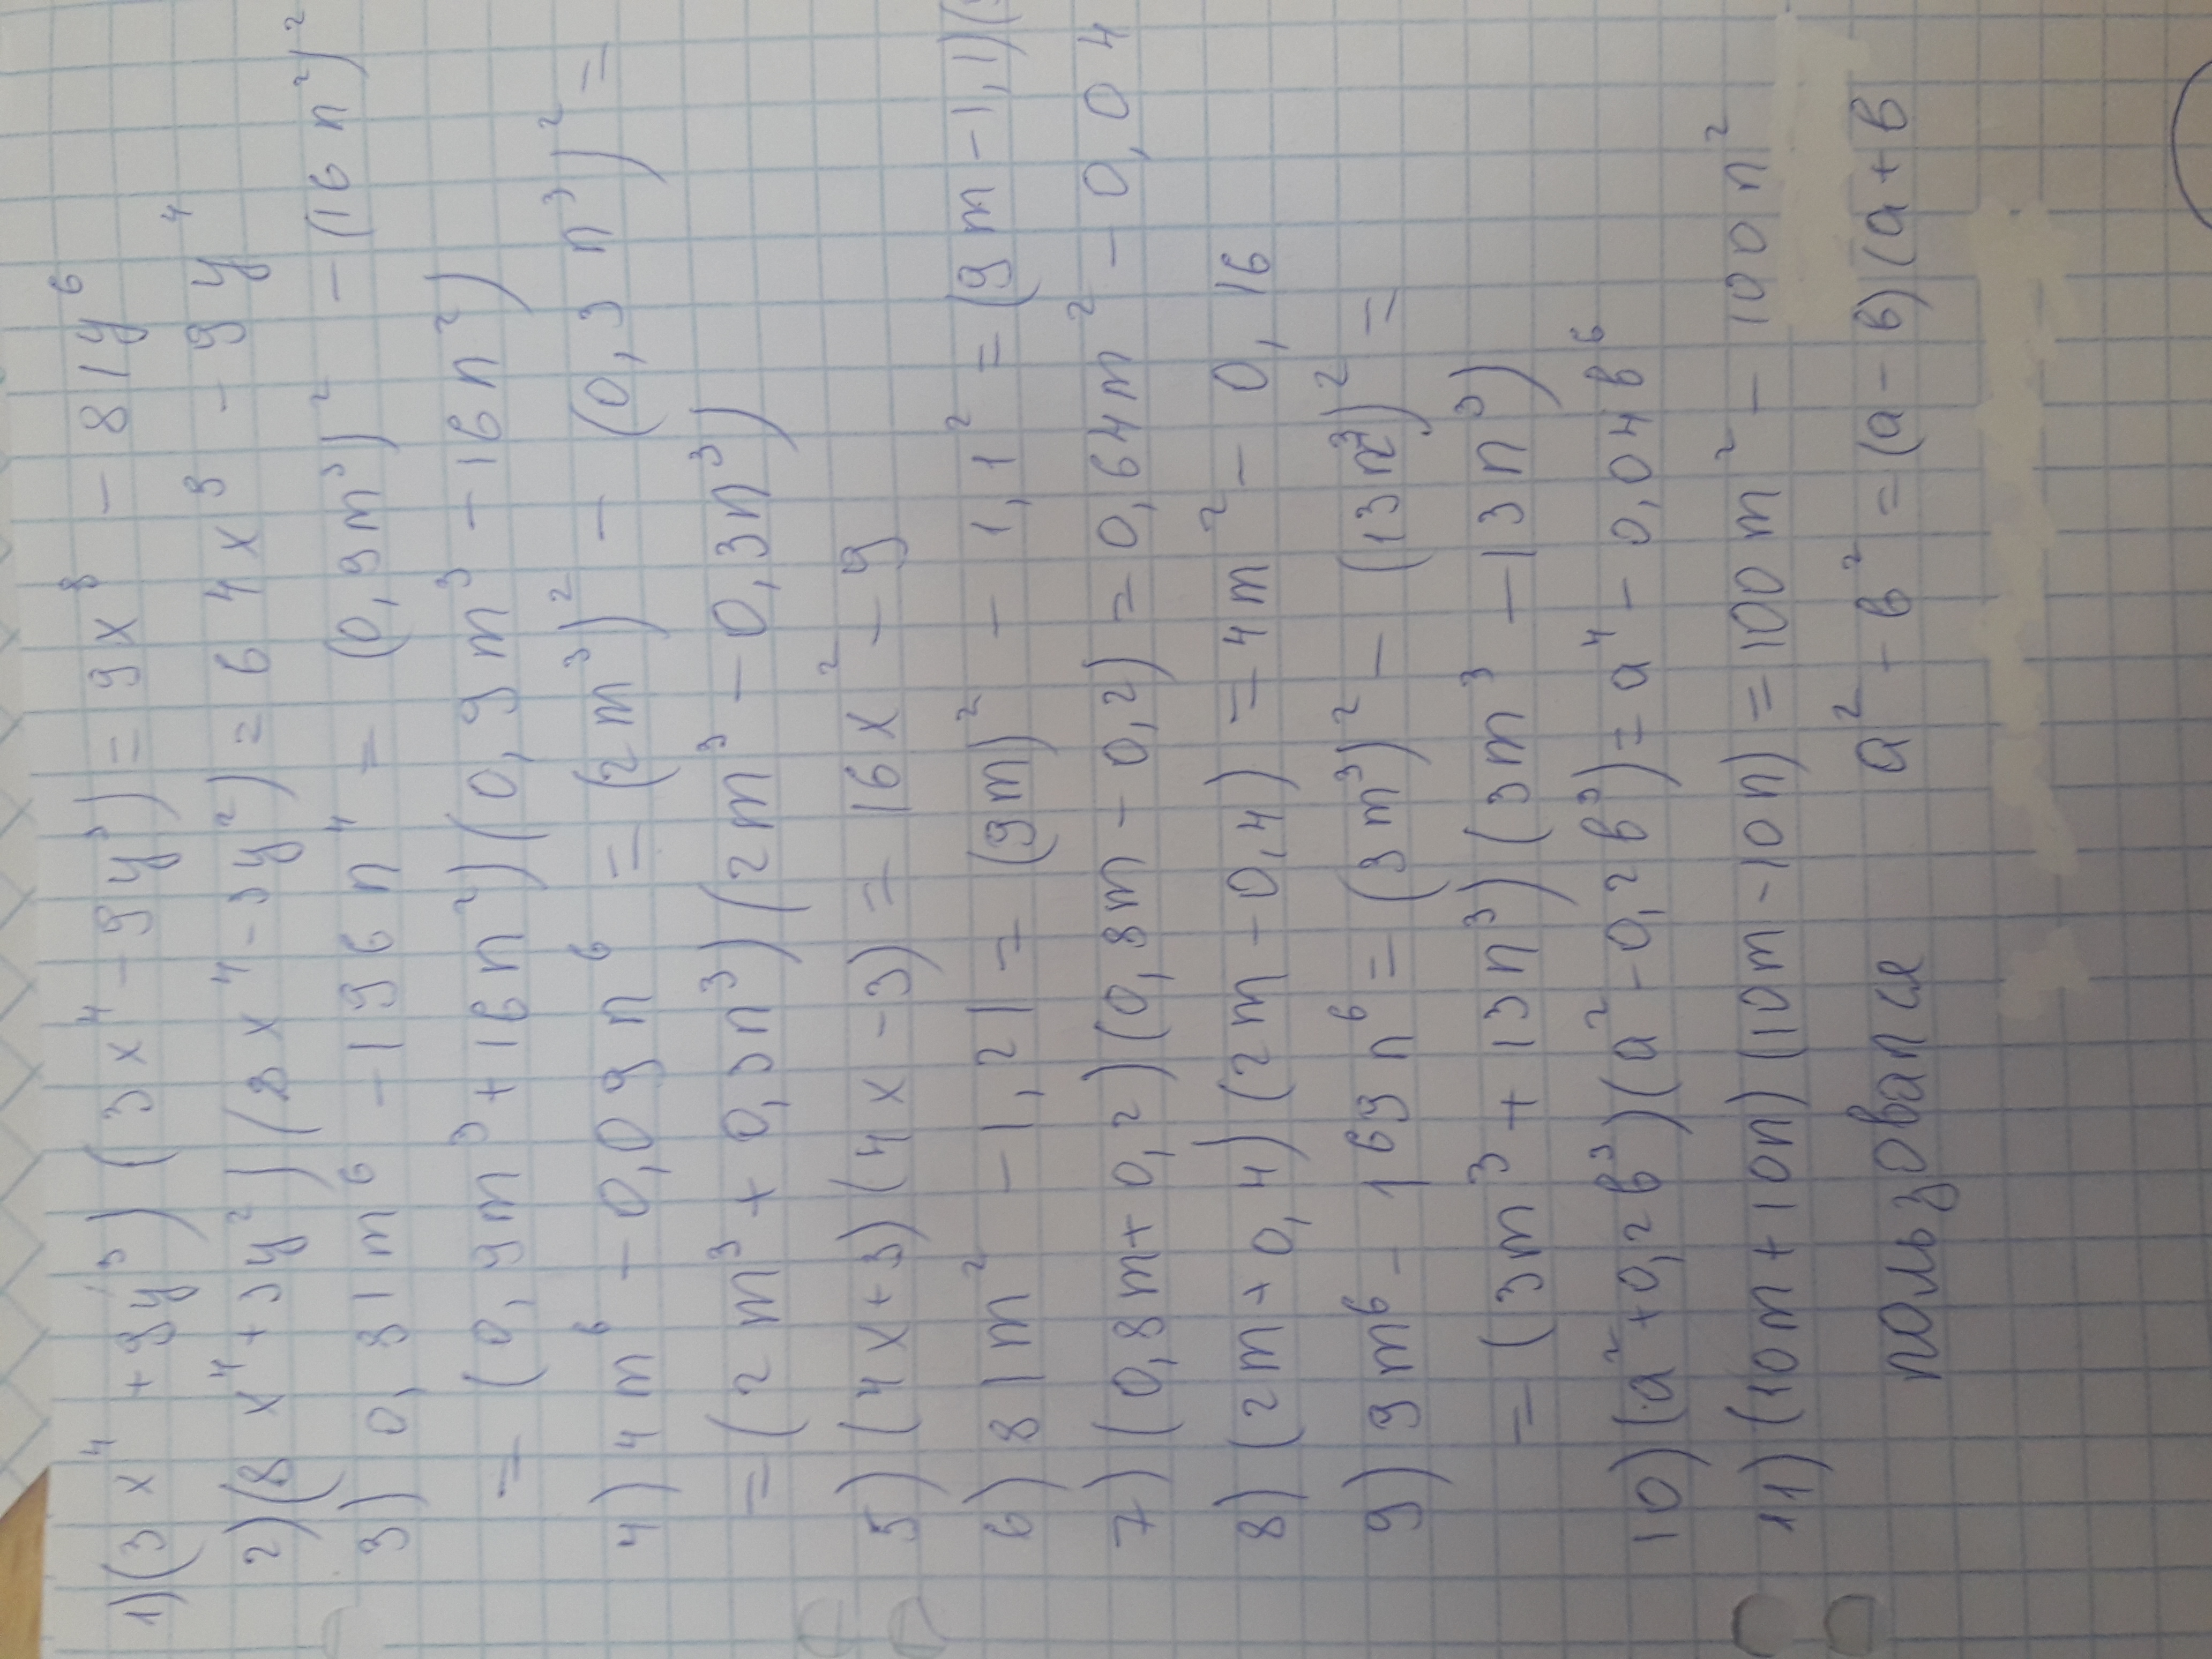 1)(3x⁴+9y³)(3x⁴-9y³)=9x⁸-81y⁶
2)(8x⁴+3y²)(8x⁴-3y²)=64x⁸-9y⁴
3) 0,81m⁶-196n⁴=(0,9m³)²-(16n²)²
=(0,9m³+16n²)(0,9m³-16n²)
4) 4m⁶-0,09n⁶=(2m³)²-(0,3n³)²=
=(2m³+0,3n³)(2m³-0,3n³)
5) (4x+3)(4x-3)=16x²-9
6) 81m²-1,21=(9m)²-1,1²=(9m-1,1)(
7) (0,8m+0,2)(0,8m-0,2)=0,64m²-0,04
8) (2m+0,4)(2m-0,4)=4m²-0,16
9) 9m⁶-169n⁶=(3m³)²-(13n³)²=
=(3m³+13n³)(3m³-13n³)
10)(a²+0,2в³)(a²-0,2в³)=a⁴-0,04в⁶
11) (10m+10n)(10m-10n)=100m²-100n²
пользовался a²-в²=(a-в)(a+в